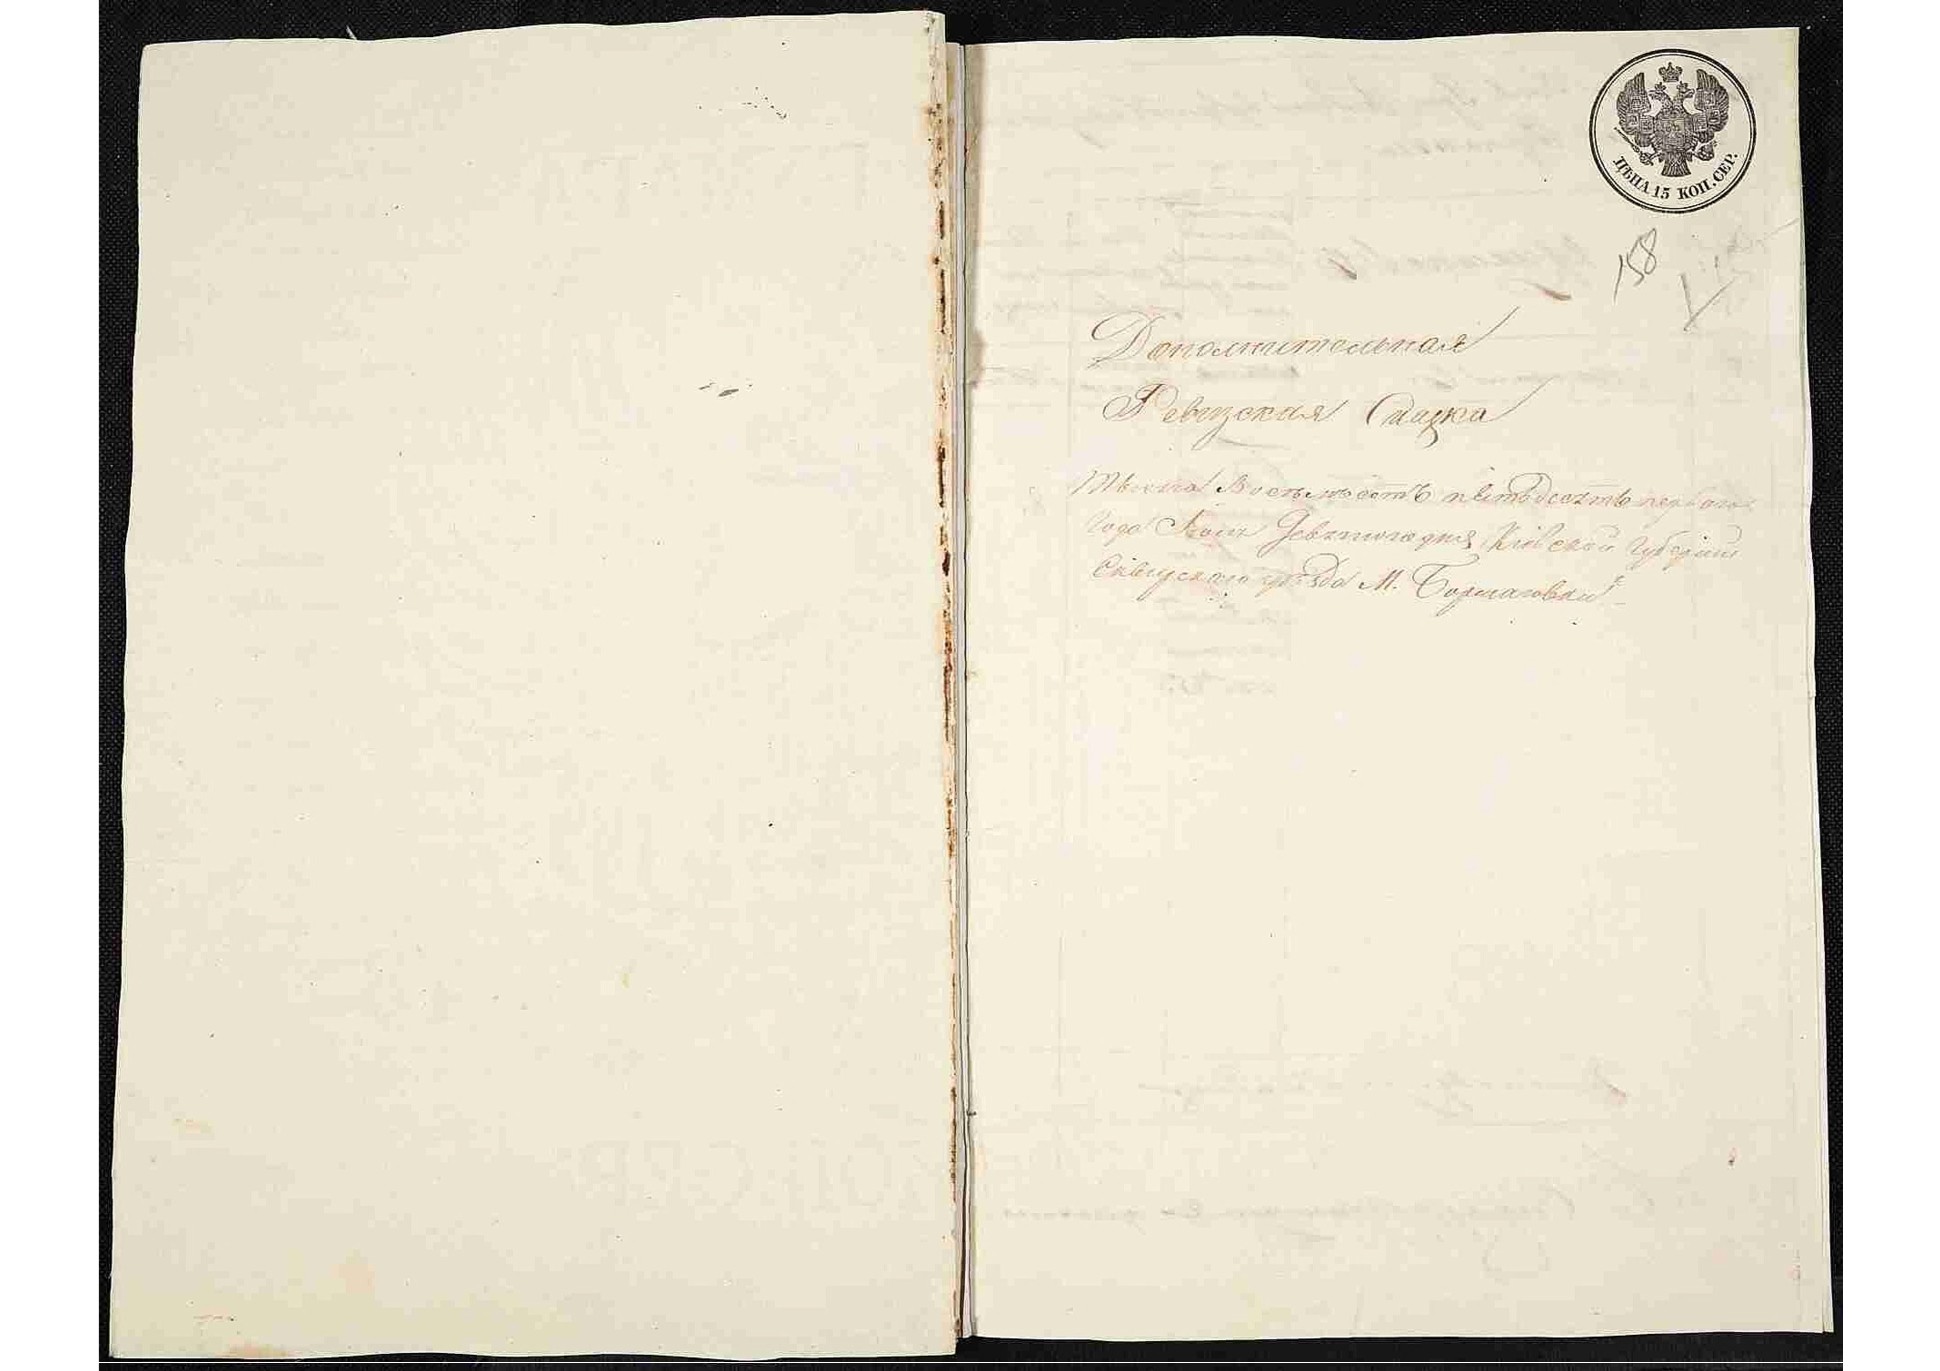 ЦѢНА 15 КОП. СЕР.
158
Дополнительная
Ревизская Сказка
Тысяча Восемьсотъ пятьдесятъ первого
Года Іюля девятого дня Кіевской Губерніи
Сквирского уѣзда М.